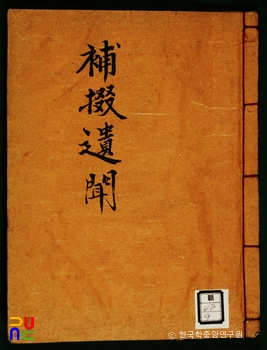 補掇遺聞
朝
© 한국학중앙연구원